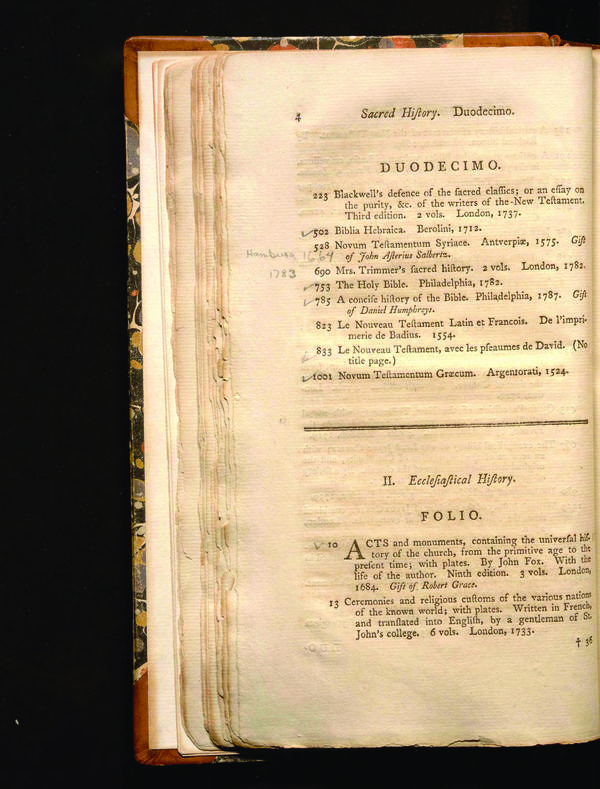 4 Sacred Hiſtory. Duodecimo.
DUODECIMO.
223 Blackwell's defence of the ſacred claſſics; or an eſſay on
the purity, &c. of the writers of the New Teſtament.
Third edition. 2 vols. London, 1737.
502 Biblia Hebraica. Berolini, 1712.
528 Novum Teſtamentum Syriace. Antverpiæ, 1575. Gift
Hamburg 1664 of John Aſterius Salbertz.
690 Mrs. Trimmer's ſacred hiſtory. 2 vols. London, 1782.
1783 753 The Holy Bible. Philadelphia, 1782.
785 A conciſe hiſtory of the Bible. Philadelphia, 1787. Gift
of Daniel Humphreys.
823 Le Nouveau Teſtament Latin et Francois. De l'impri-
merie de Badius. 1554.
833 Le Nouveau Teſtament, avec les pſeaumes de David. (No
title page.)
1001 Novum Teſtamentum Græcum. Argentorati, 1524.
II. Eccleſiaſtical Hiſtory.
FOLIO.
10 ACTS and monuments, containing the univerſal hiſ-
tory of the church, from the primitive age to the
preſent time; with plates. By John Fox. With the
life of the author. Ninth edition. 3 vols. London,
1684. Gift of Robert Grace.
13 Ceremonies and religious cuſtoms of the various nations
of the known world; with plates. Written in French,
and tranſlated into Engliſh, by a gentleman of St.
John's college. 6 vols. London, 1733.
† 36